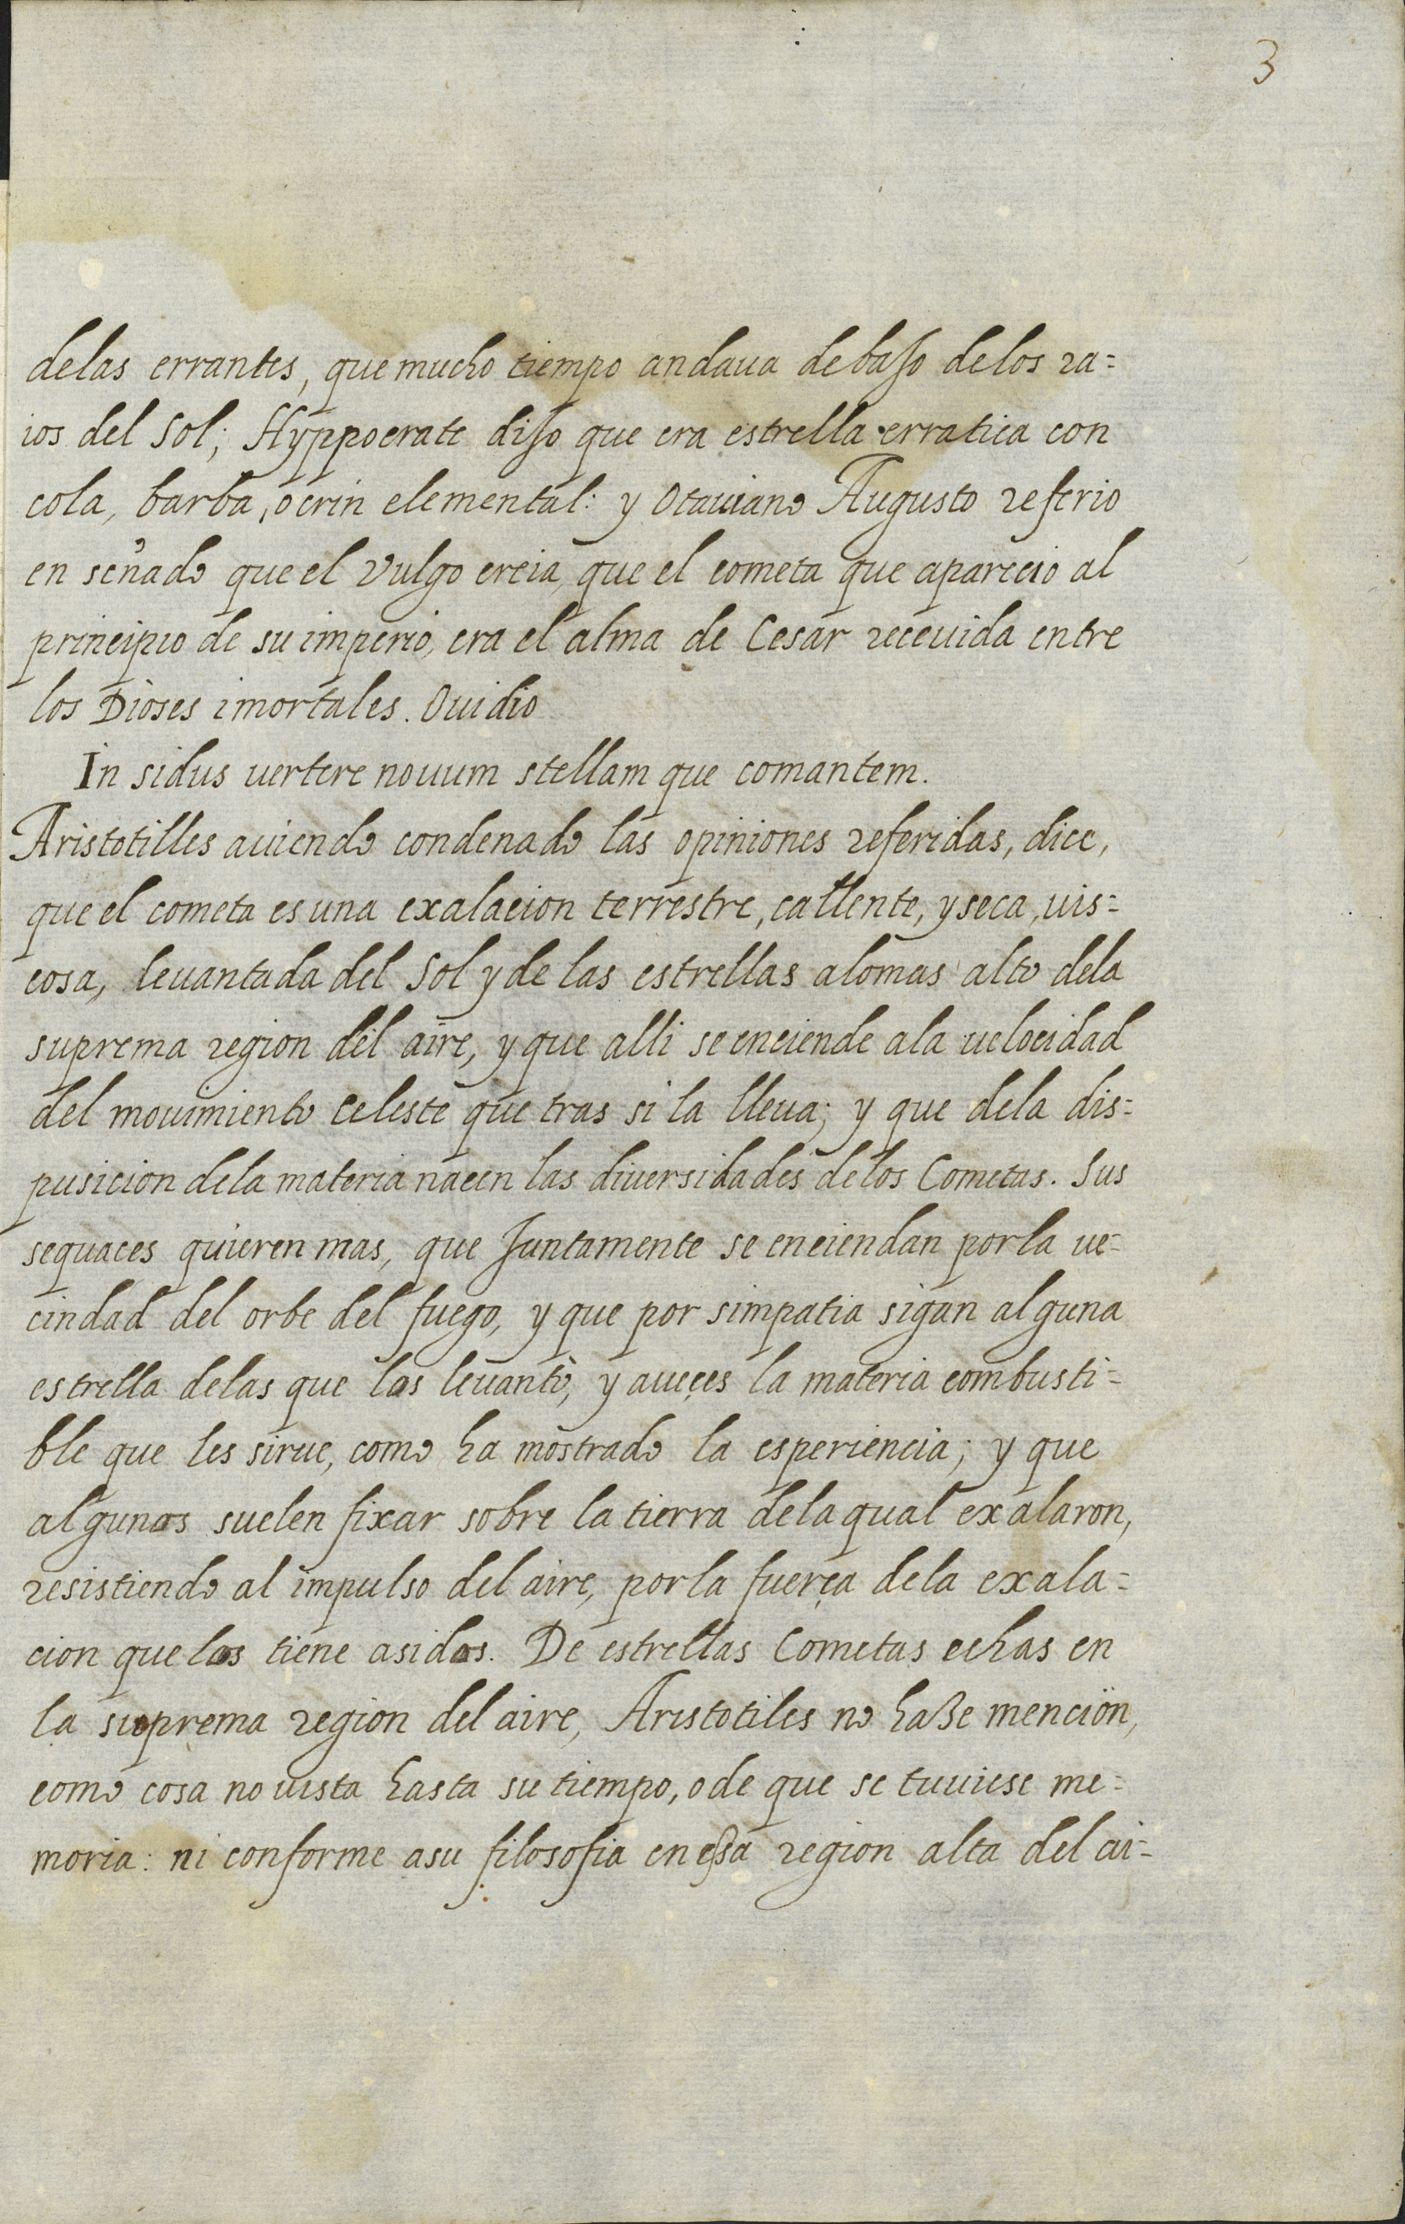 3
delas errantes, que mucho tiempo andaua debajo delos ra=
ios del Sol; Hyppocrate dijo que era estrella erratica con
cola, barba, o crin elemental: y Otauiano Augusto referio
en senado que el Vulgo creia, que el cometa que aparecio al
principio de su imperio, era el alma de Cesar receuida entre
los Dioses imortales. Ouidio
In sidus vertere nouum stellam que comantem.
Aristotilles auiendo condenado las opiniones referidas, dice,
que el cometa es una exalacion terrestre, callente, y seca, uis=
cosa, leuantada del Sol y de las estrellas alomas alto dela
suprema region del aire, y que alli se enciende ala uelocidad
del mouimiento celeste que tras si la lleua; y que dela dis=
pusicion dela materia nacen las diuersidades delos Cometas. Sus
sequaces quieren mas, que Juntamente se enciendan por la ue=
cindad del orbe del fuego, y que por simpatia sigan alguna
estrella delas que los leuantò, y aueçes la materia combusti=
ble que les sirue, como ha mostrado la esperiencia; y que
algunos suelen fixar sobre la tierra dela qual exalaron,
resistiendo al impulso del aire, por la fuerça dela exala=
cion que los tiene asidos. De estrellas Cometas echas en
la suprema region del aire, Aristotiles no haze mencion,
como cosa no uista hasta su tiempo, o de que se tuuiese me=
moria: ni conforme asu filosofia en eßa region alta del ai=